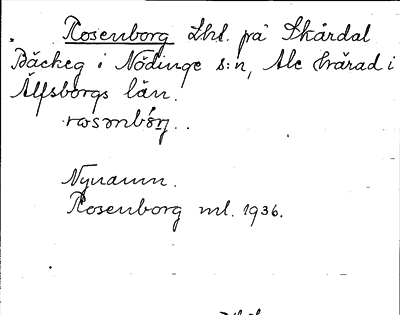 Rosenborg Lhl. på Skårdal
Bäckeg i Nödinge s:n, Ale härad i
Älfsborgs län.
Nynamn.
Rosenborg ml. 1936.